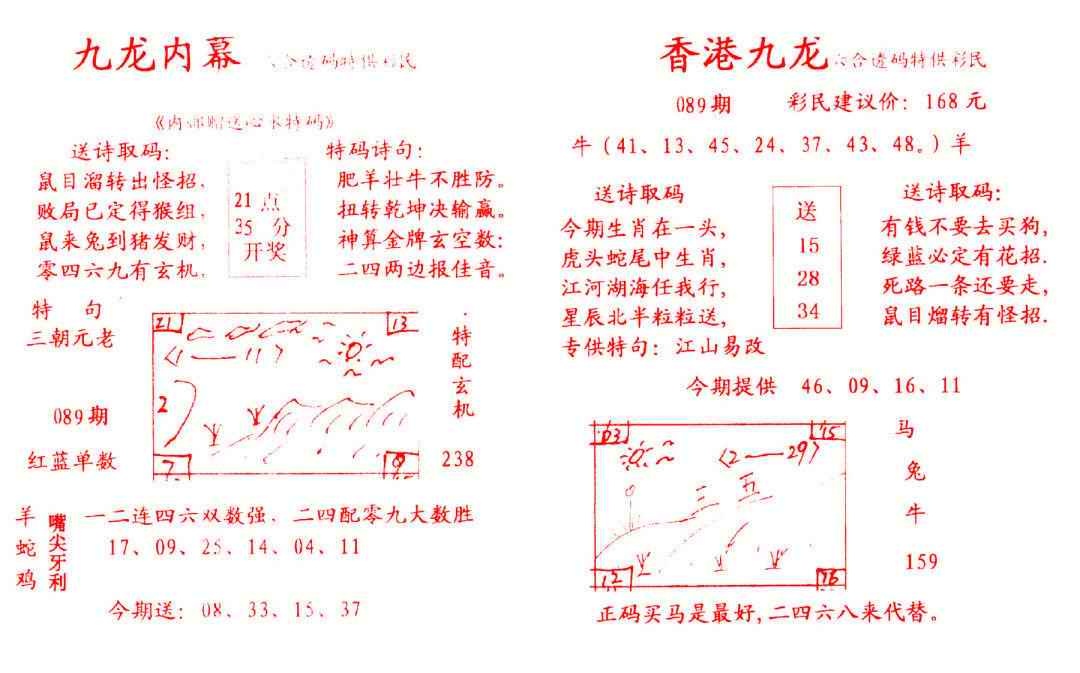 九龙内幕 六合透码特供彩民
《内部赠送心水特码》
送诗取码：
鼠目溜转出怪招，
败局已定得猴组，
鼠来兔到猪发财，
零四六九有玄机，
21 点
35 分
开奖
特码诗句：
肥羊壮牛不胜防。
扭转乾坤决输赢。
神算金牌玄空数：
二四两边报佳音。
特 句
三朝元老
089期
红蓝单数
21
13
〈1——11〉
2
7
9
特配玄机
238
羊蛇鸡
嘴尖牙利
一二连四六双数强，二四配零九大数胜
17、09、25、14、04、11
今期送：08、33、15、37
香港九龙 六合透码特供彩民
089期 彩民建议价：168元
牛（41、13、45、24、37、43、48。）羊
送诗取码
今期生肖在一头，
虎头蛇尾中生肖，
江河湖海任我行，
星辰北半粒粒送，
专供特句：江山易改
送
15
28
34
送诗取码：
有钱不要去买狗，
绿蓝必定有花招.
死路一条还要走，
鼠目熘转有怪招.
今期提供 46、09、16、11
03
15
〈2——29〉
三五
12
16
马
兔
牛
159
正码买马是最好，二四六八来代替。